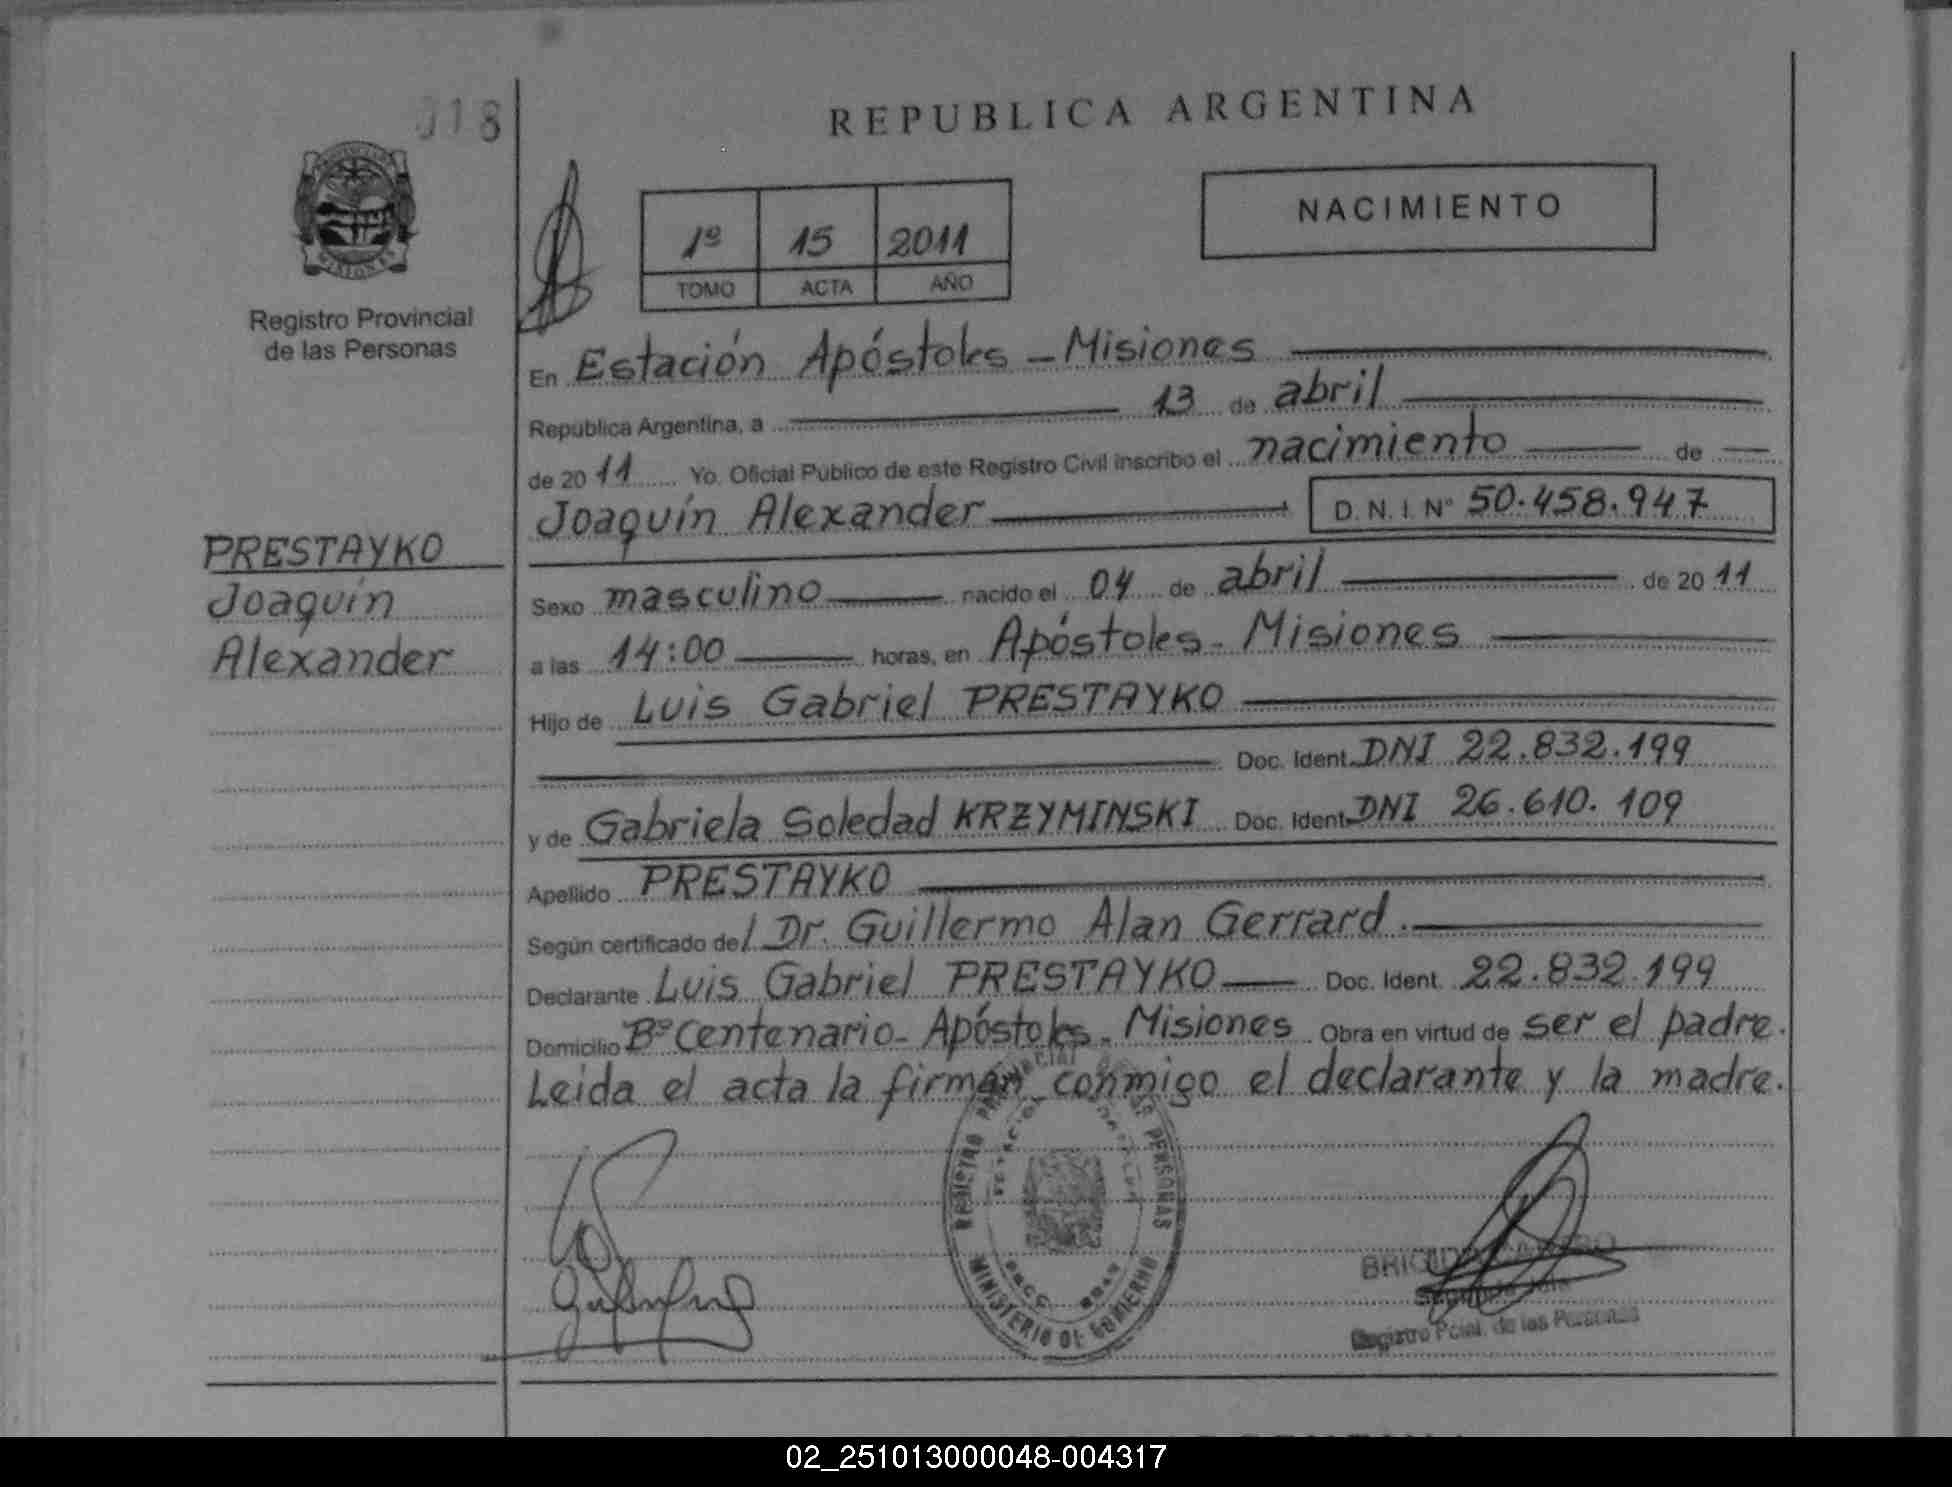 018
REPUBLICA ARGENTINA
NACIMIENTO
1º 15 2011
TOMO ACTA AÑO
MISIONES
Registro Provincial
de las Personas
En Estación Apóstoles - Misiones
Republica Argentina, a 13 de abril
de 20 11 Yo. Oficial Publico de este Registro Civil inscribo el nacimiento de
Joaquín Alexander D. N. I. Nº 50.458.947
PRESTAYKO
Joaquín
Alexander
Sexo masculino nacido el 04 de abril de 20 11
a las 14:00 horas, en Apóstoles - Misiones
Hijo de Luis Gabriel PRESTAYKO
Doc. Ident. DNI 22.832.199
y de Gabriela Soledad KRZYMINSKI Doc. Ident. DNI 26.610.109
Apellido PRESTAYKO
Según certificado del Dr. Guillermo Alan Gerrard.
Declarante Luis Gabriel PRESTAYKO Doc. Ident. 22.832.199
Domicilio Bº Centenario - Apóstoles - Misiones Obra en virtud de ser el padre.
Leida el acta la firman conmigo el declarante y la madre.
REGISTRO PROVINCIAL DE LAS PERSONAS
MINISTERIO DE GOBIERNO
Registro Pcial. de las Personas
02_251013000048-004317